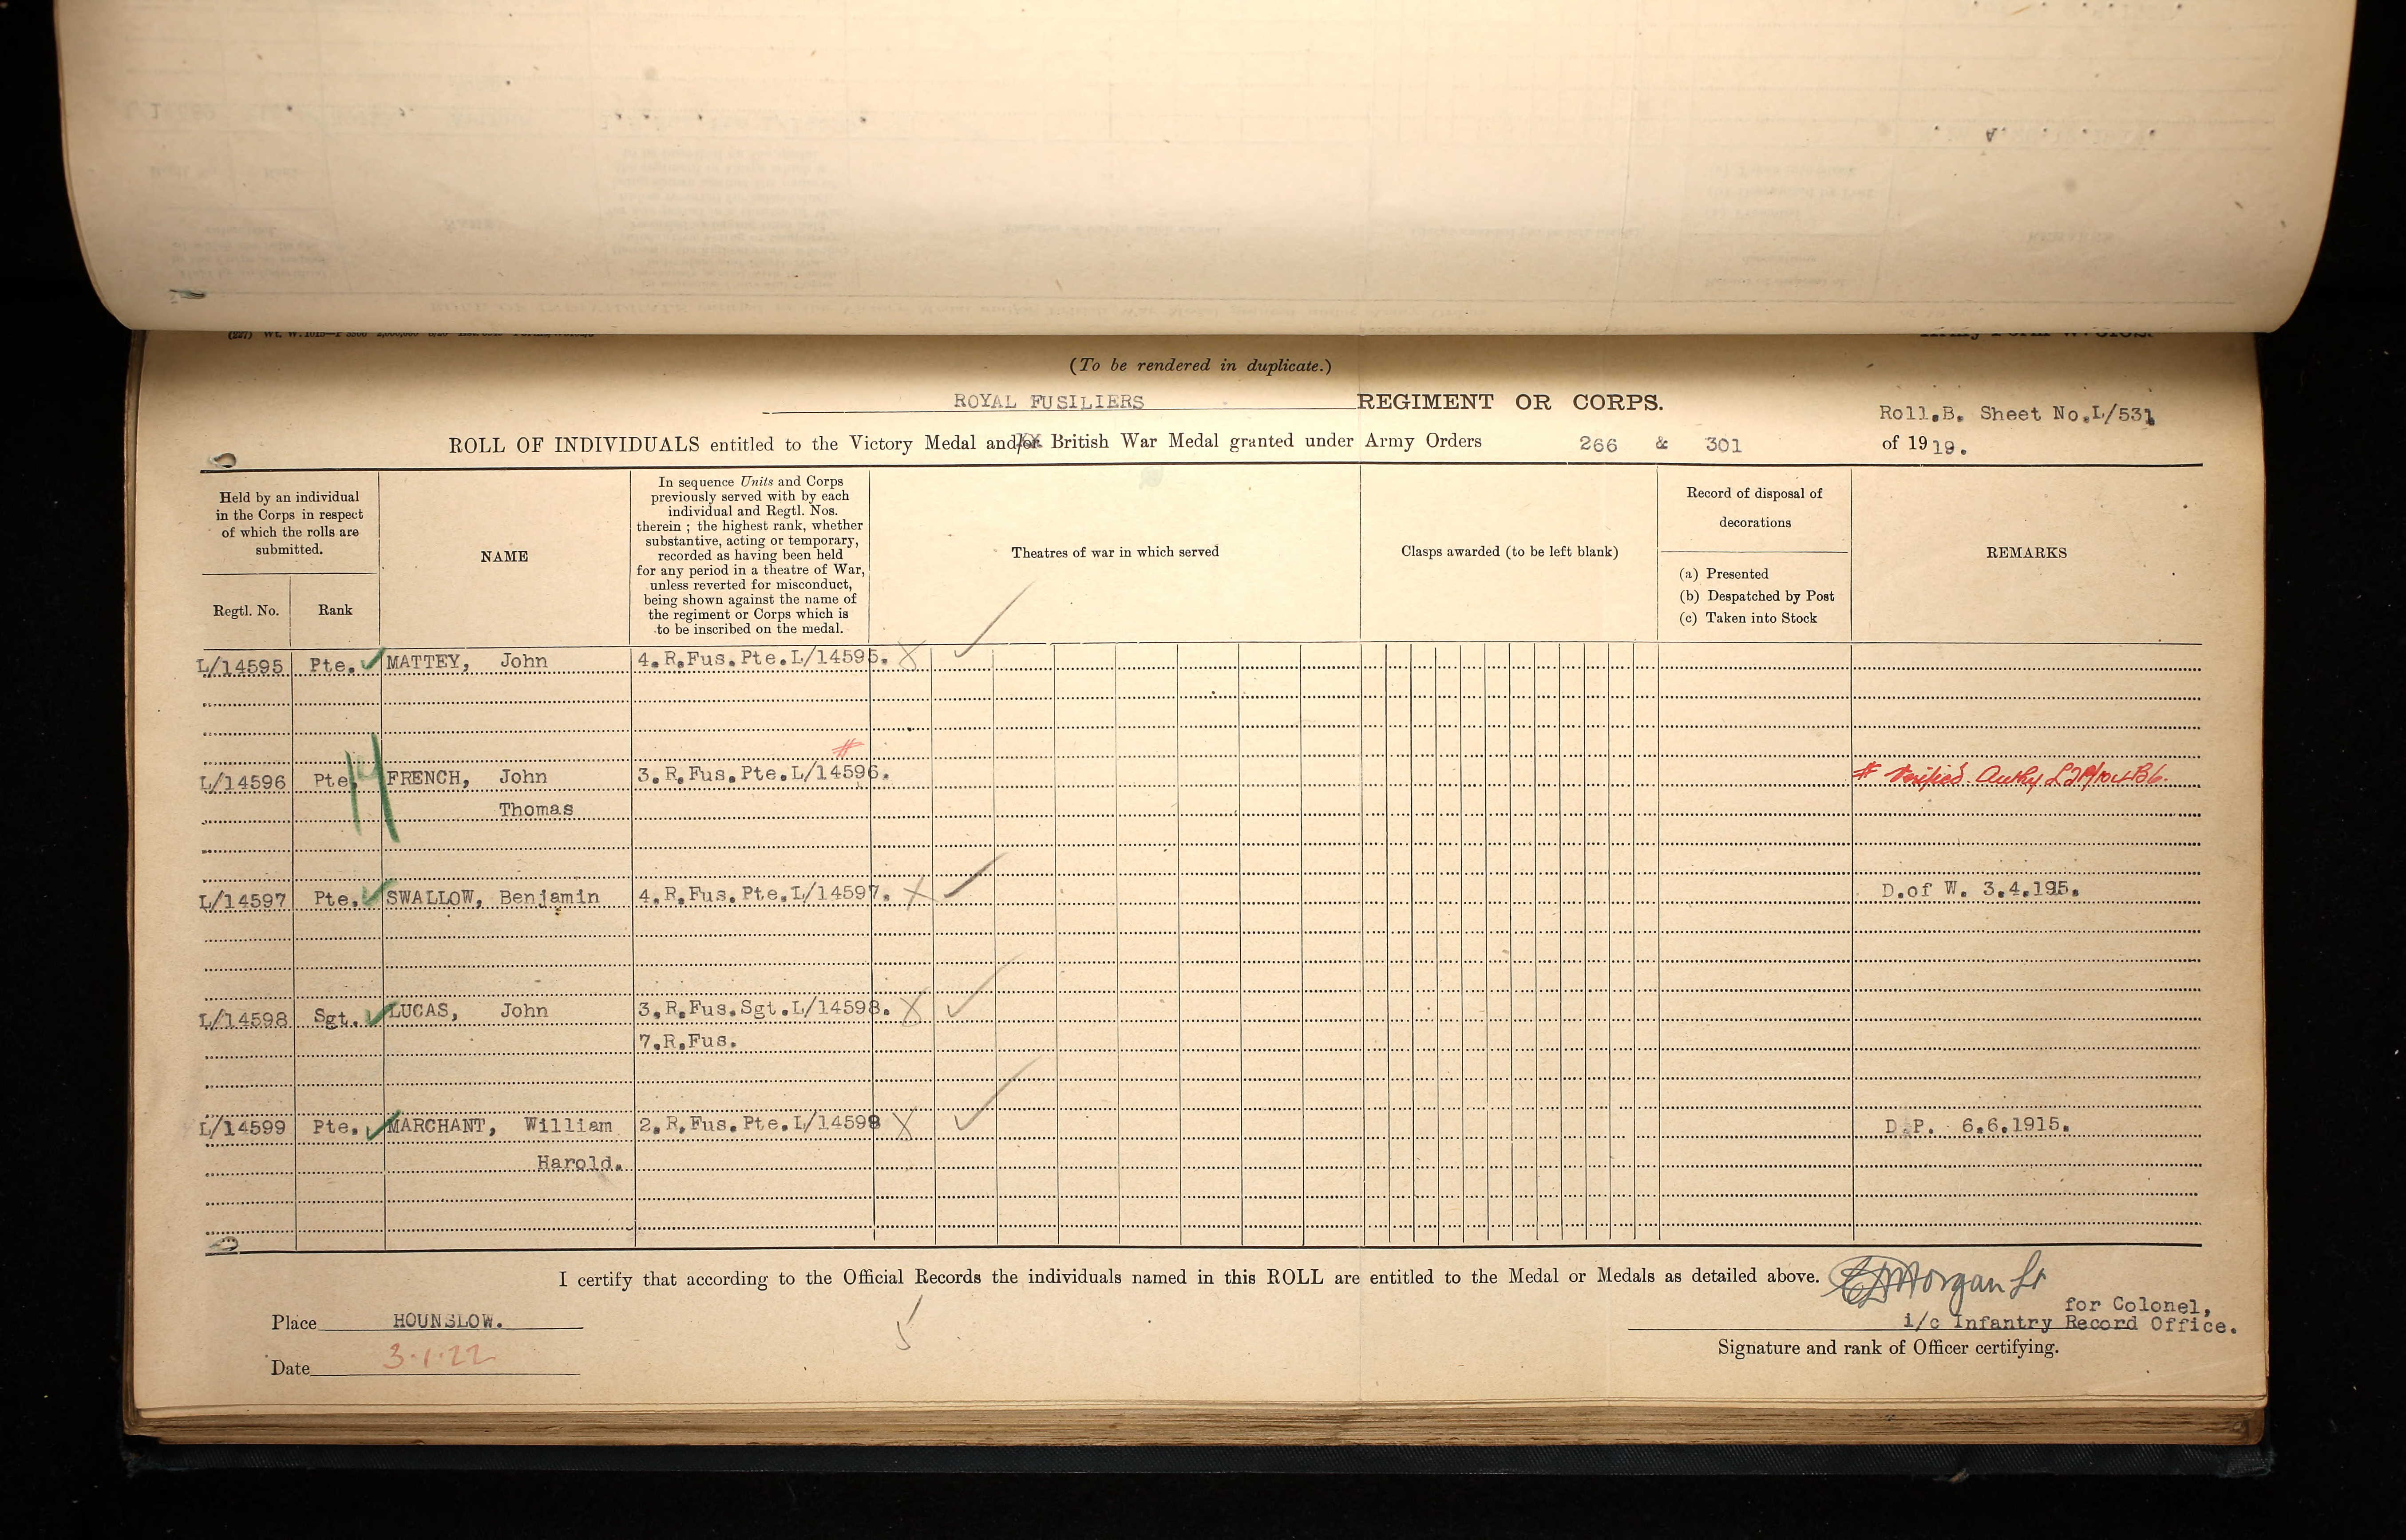 (To be rendered in duplicate.)
ROYAL FUSILIERS REGIMENT OR CORPS.
Roll.B. Sheet No.L/531
ROLL OF INDIVIDUALS entitled to the Victory Medal and/or British War Medal granted under Army Orders 266 & 301 of 1919.
Held by an individual
in the Corps in respect
of which the rolls are
submitted.
Regtl. No.
Rank
NAME
In sequence Units and Corps
previously served with by each
individual and Regtl. Nos.
therein ; the highest rank, whether
substantive, acting or temporary,
recorded as having been held
for any period in a theatre of War,
unless reverted for misconduct,
being shown against the name of
the regiment or Corps which is
to be inscribed on the medal.
Theatres of war in which served
Clasps awarded (to be left blank)
Record of disposal of
decorations
(a) Presented
(b) Despatched by Post
(c) Taken into Stock
REMARKS
L/14595 Pte. MATTEY, John 4.R.Fus.Pte.L/14595. X
#
L/14596 Pte. FRENCH, John 3.R.Fus.Pte.L/14596. # Verified.
Thomas
L/14597 Pte. SWALLOW, Benjamin 4.R.Fus.Pte.L/14597. X D.of W. 3.4.195.
L/14598 Sgt. LUCAS, John 3.R.Fus.Sgt.L/14598. X
7.R.Fus.
L/14599 Pte. MARCHANT, William 2.R.Fus.Pte.L/14599 X D.P. 6.6.1915.
Harold.
I certify that according to the Official Records the individuals named in this ROLL are entitled to the Medal or Medals as detailed above.
Morgan Lt
for Colonel,
Place HOUNSLOW.
i/c Infantry Record Office.
Signature and rank of Officer certifying.
Date 3.1.22